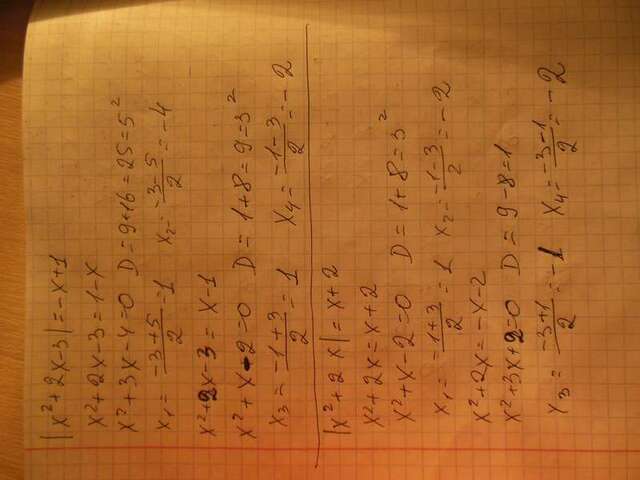 |x²+2x-3|=-x+1
x²+2x-3=1-x
x²+3x-4=0 D=9+16=25=5²
x₁=(-3+5)/2=1 x₂=(-3-5)/2=-4
x²+2x-3=x-1
x²+x-2=0 D=1+8=9=3²
x₃=(-1+3)/2=1 x₄=(-1-3)/2=-2
|x²+2x|=x+2
x²+2x=x+2
x²+x-2=0 D=1+8=3²
x₁=(-1+3)/2=1 x₂=(-1-3)/2=-2
x²+2x=-x-2
x²+3x+2=0 D=9-8=1
x₃=(-3+1)/2=-1 x₄=(-3-1)/2=-2